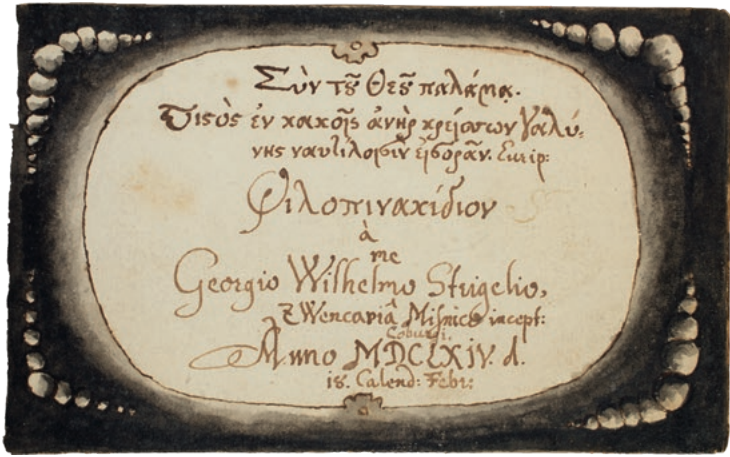 Σὺν τȣ͂ Θεȣ͂ παλάμᾳ.
Πιϛὸς ἐν κακοῖς ἀνὴρ κρείσσων γαλή-
νης ναυτίλοισιν εἰσορᾶν. Eurip:
Φιλοπινακίδιον
à
me
Georgio Wilhelmo Strigelio,
Misnico incept:
Coburgi.
Anno MDCLXIV. d.
18. Calend: Febr: